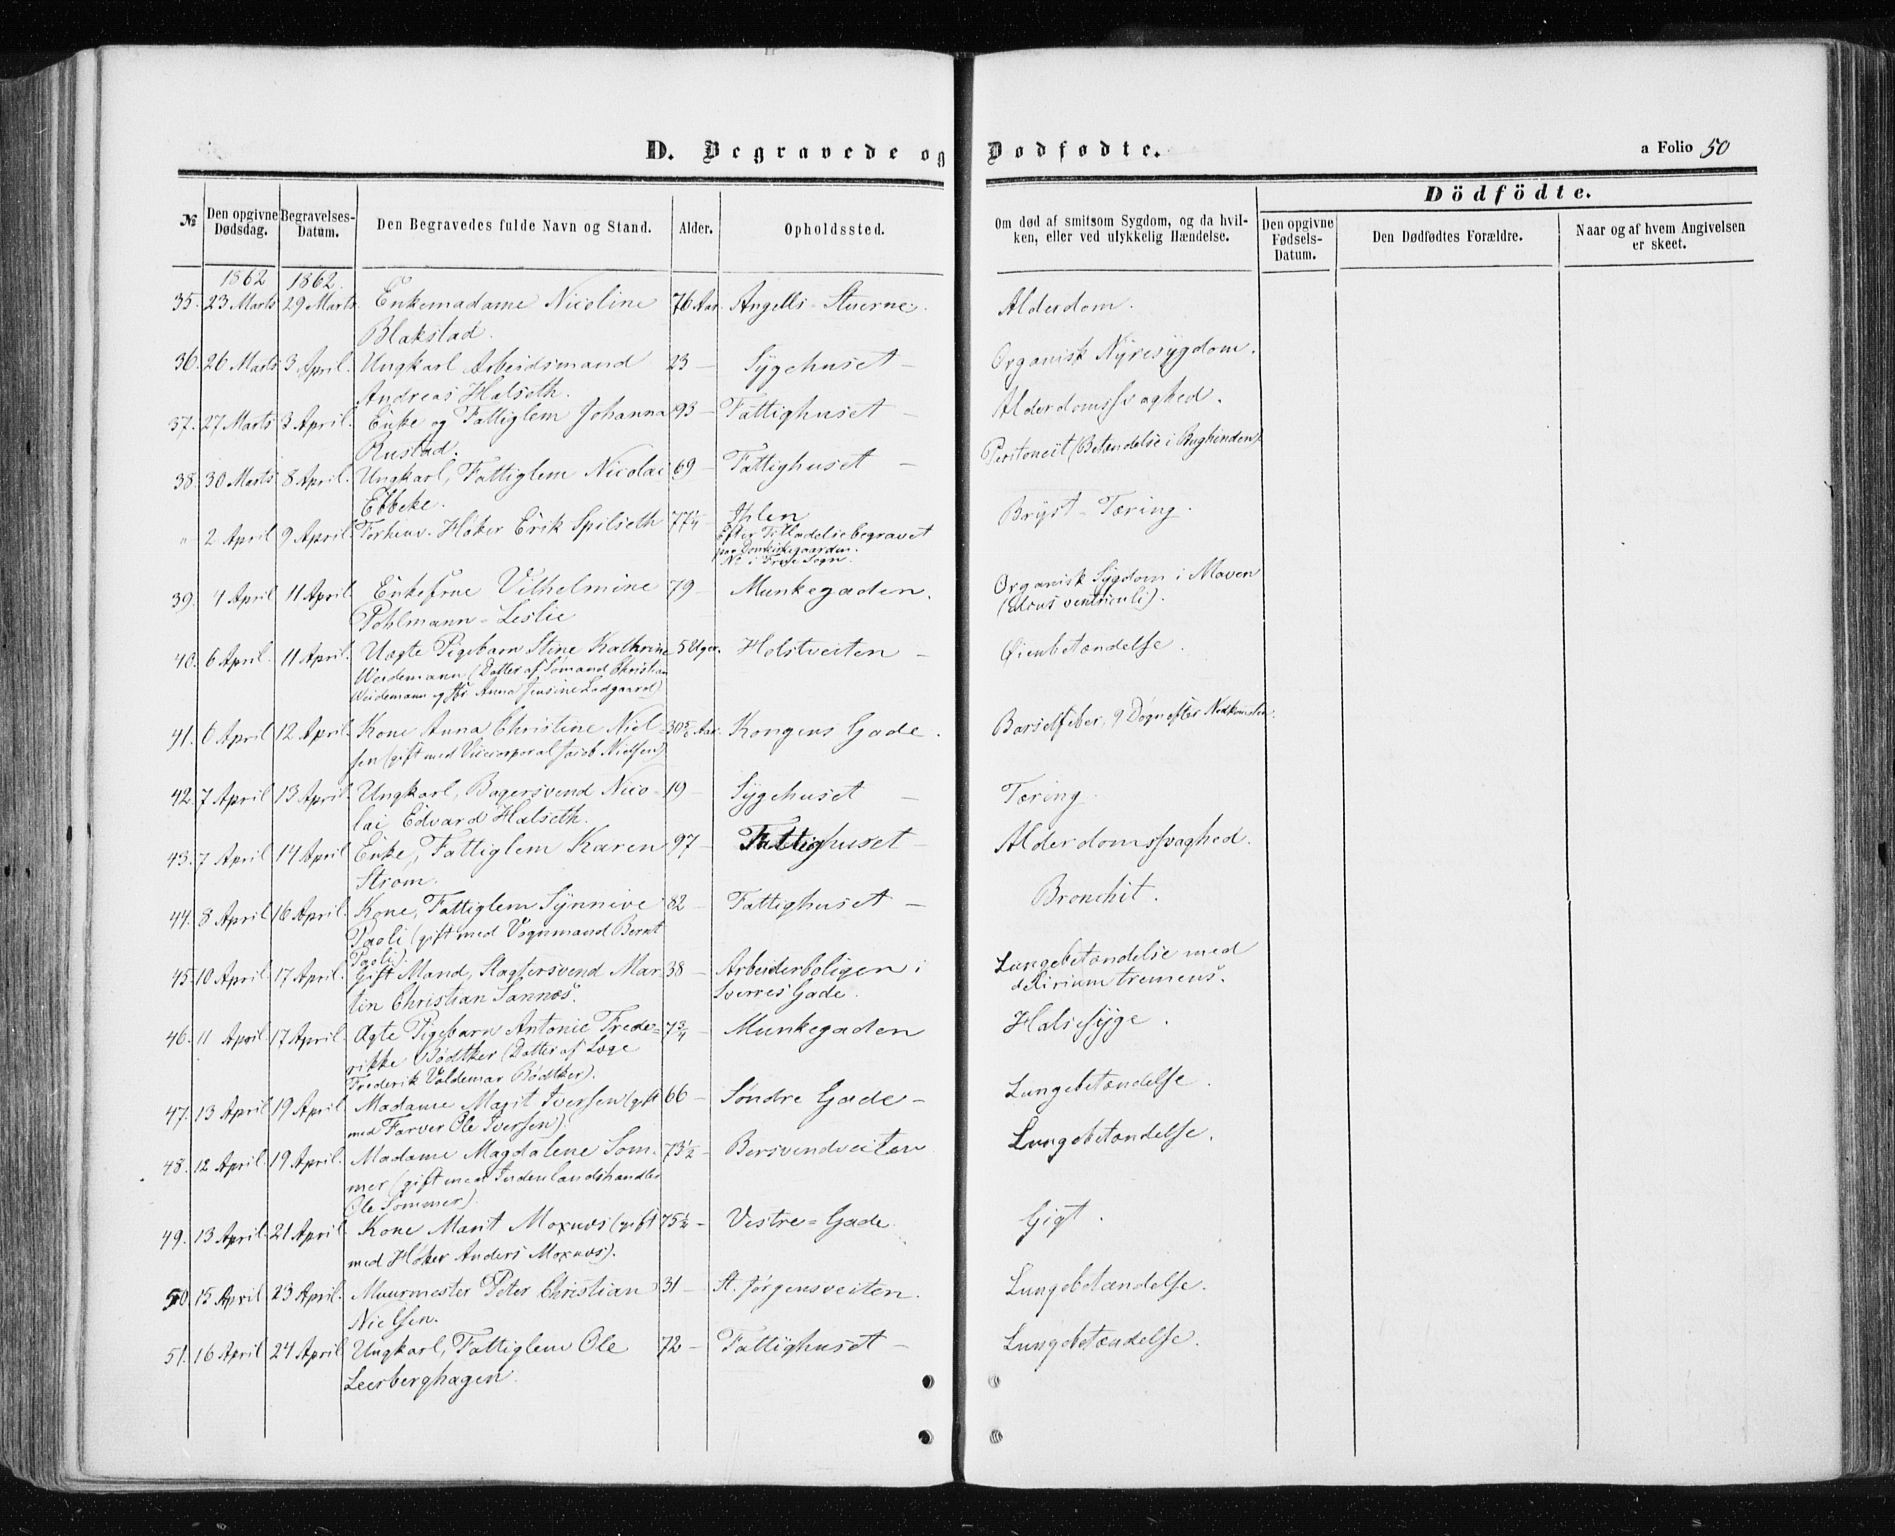 D. Begravede og Dødfødte.
a Folio 50
Dödfödte.
№
Den opgivne Dødsdag.
Begravelses-Datum.
Den Begravedes fulde Navn og Stand.
Alder.
Opholdssted.
Om død af smitsom Sygdom, og da hvil-
ken, eller ved ulykkelig Hændelse.
Den opgivne Fødsels-Datum.
Den Dødfødtes Forældre.
Naar og af hvem Angivelsen
er skeet.
1862 1862.
35. 23 Marts 29 Marts. Enkemadame Nicoline 76 Aar. Angells Stuerne. Alderdom.
Blakstad.
36. 26 Marts 3 April. Ungkarl Arbeidsmand 23 — Sygehuset — Organisk Nyresygdom.
Andreas Halseth.
37. 27 Marts 3 April. Enke og Fattiglem Johanna 93 — Fattighuset — Alderdomssvaghed.
Rustad.
38. 30 Marts 8 April. Ungkarl, Fattiglem Nicolai 69 — Fattighuset — Peritoneit (Betændelse i Bughinden).
Ebbeke.
" 2 April 9 April. Forhenv. Høker Erik Spilseth 77 1/4 — Ihlen Bryst-Tæring.
Efter Tilladelse begravet
paa Domkirkegaarden.
No i Frue Sogn.
39. 4 April 11 April Enkefrue Vilhelmine 79 — Munkegaden. Organisk Sygdom i Maven
Pohlmann-Leslie (ulcus ventriculi).
40. 6 April. 11 April. Uægte Pigebarn Stine Kathrine 5 Uger. Holstveiten — Øienbetændelse.
Weidemann (Datter af Sømand Christian
Weidemann og Anna Jensine Ladgaard)
41. 6 April 12 April. Kone Anna Christine Niel- 30 Aar. Kongens Gade. Barselfeber, 9 Døgn efter Nedkomsten.
sen (gift med Vicecorporal Jacob Nielsen)
42. 7 April 13 April. Ungkarl, Bagersvend Nico- 19 — Sygehuset — Tæring.
lai Edvard Halseth.
43. 7 April 14 April Enke, Fattiglem Karen 97 — Fattighuset — Alderdomssvaghed.
Strøm.
44. 8 April 16 April. Kone, Fattiglem Synnive 82 — Fattighuset — Bronchit.
Paoli (gift med Vognmand Bernt
Paoli).
45. 10 April. 17 April. Gift Mand, Slagtersvend Mar- 38 — Arbeiderboligen i Lungebetændelse med
tin Christian Sannæs. Sverres Gade. delirium tremens.
46. 11 April 17 April. Ægte Pigebarn Antonie Frede- 7 3/4 — Munkegaden Halssyge.
rikke Bødtker (Datter af Læge
Frederik Valdemar Bødtker).
47. 13 April 19 April. Madame Marit Iversen (gift 66 — Søndre Gade — Lungebetændelse.
med Farver Ole Iversen).
48. 12 April. 19 April. Madame Magdalene Som- 73 1/2 — Borsvendveiten Lungebetændelse.
mer (gift med Indenlandshandler
Ole Sommer).
49. 13 April. 21 April. Kone Marit Moxnæs (gift 75 1/2 — Vestre-Gade. Gigt.
med Høker Anders Moxnæs).
50. 15 April 23 April. Muurmester Peter Christian 31 — St. Jørgensveiten. Lungebetændelse.
Nielsen.
51. 16 April 24 April Ungkarl, Fattiglem Ole 72 — Fattighuset — Lungebetændelse.
Leerberghagen.